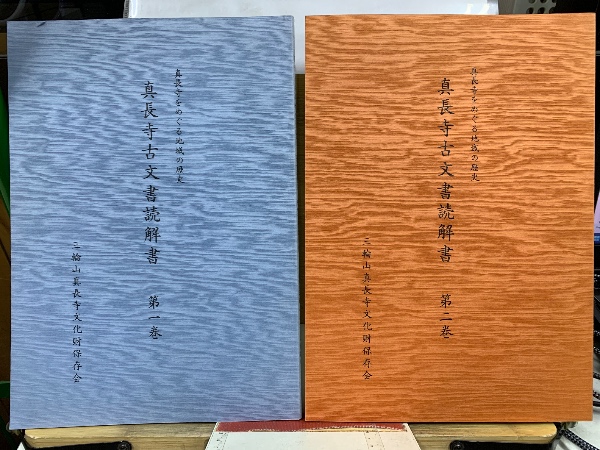 真長寺をめぐる地域の歴史
真長寺古文書読解書 第一巻
三輪山真長寺文化財保存会
真長寺をめぐる地域の歴史
真長寺古文書読解書 第二巻
三輪山真長寺文化財保存会